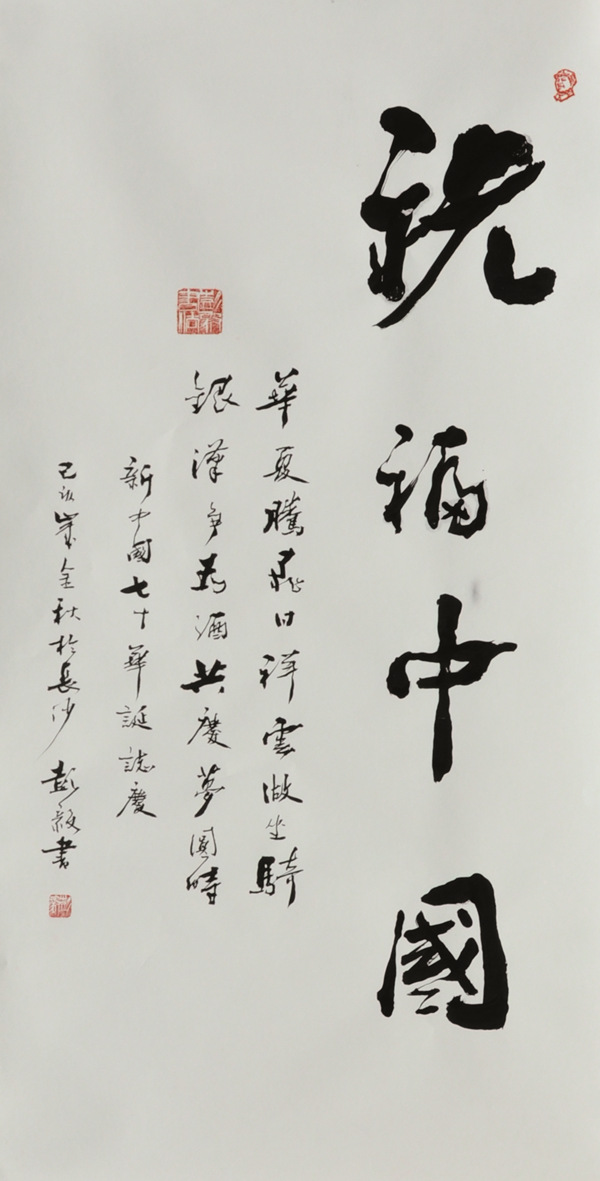 祝福中國
華夏騰飛日祥雲做坐騎
銀漢爭為酒共慶夢圓時
新中國七十華誕誌慶
己亥歲金秋於長沙 彭 書